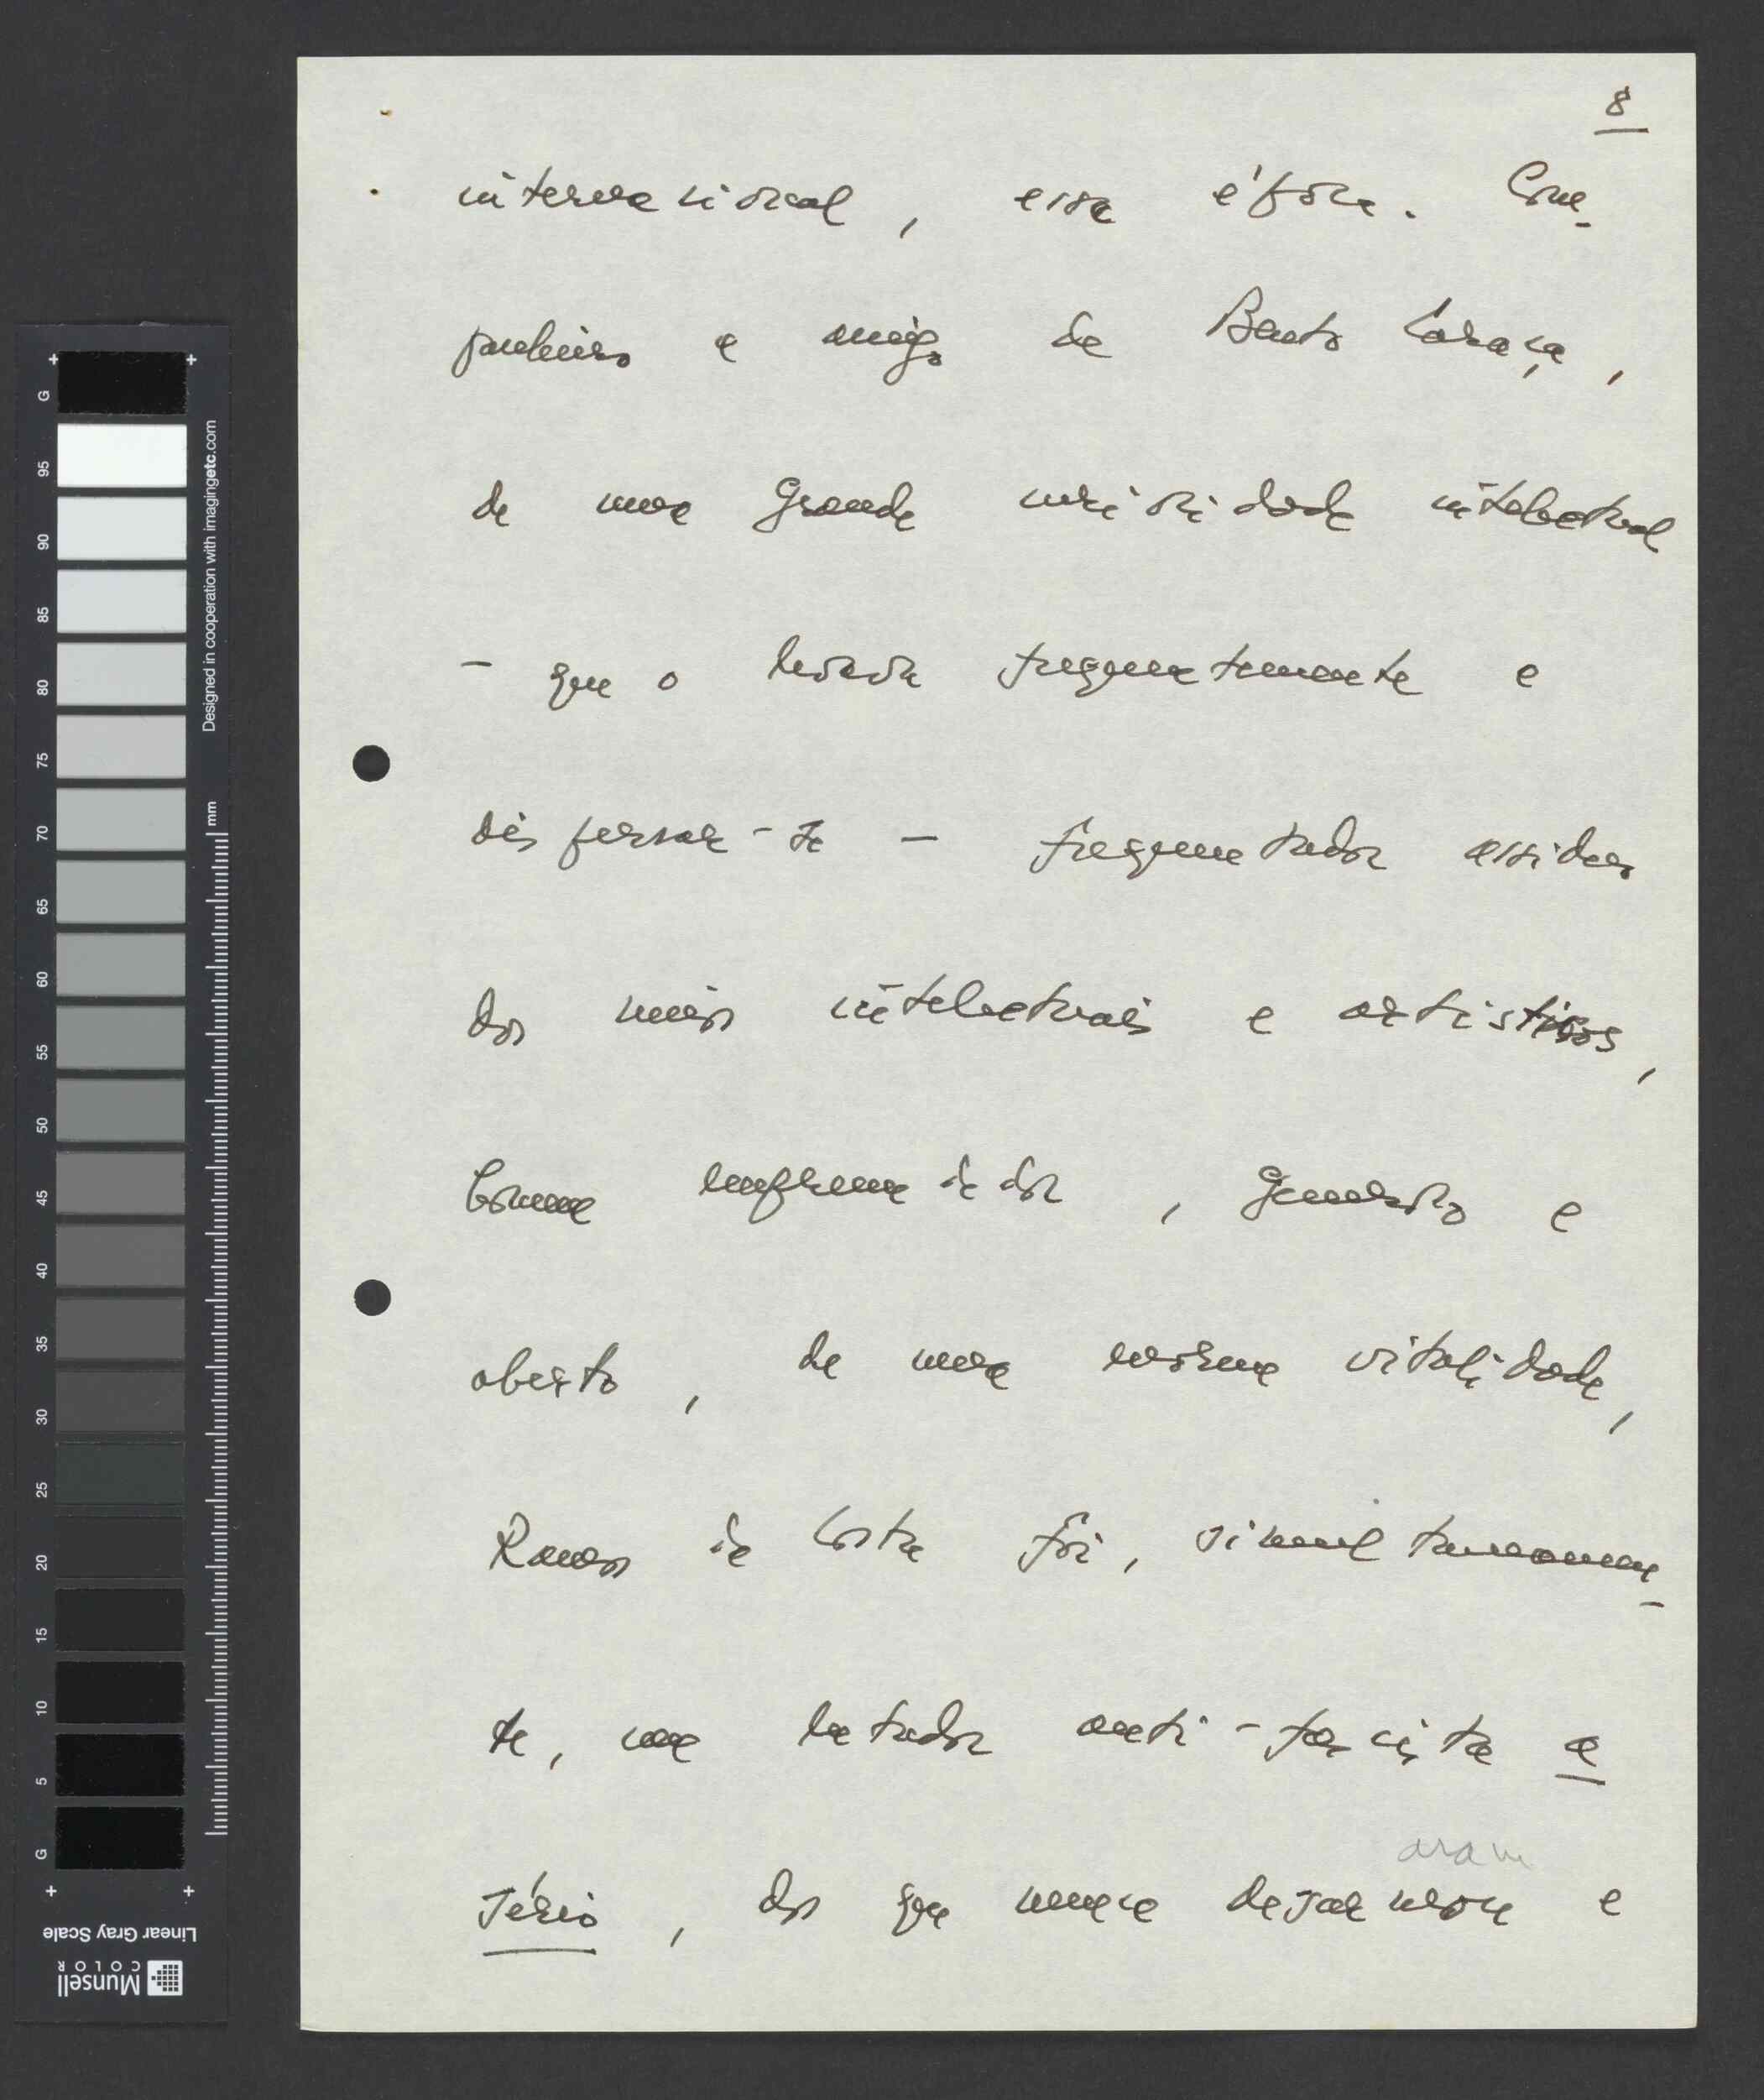 8
internacional, essa época. Com-
panheiro e amigo de Bento Caraça,
de uma grande curiosidade intelectual
- que o levava frequentemente a
dispersar-se - frequentador assíduo
dos meios intelectuais e artísticos,
homem empreendedor, generoso e
aberto, de uma enorme vitalidade,
Ramos da Costa foi, simultaneamen-
te, um lutador anti-fascista a
sério, dos que nunca desarmou e
aram
G
95
90
85
80
75
70
65
60
55
50
45
40
35
30
25
20
15
10
5
G
mm
Designed in cooperation with imagingetc.com
Linear Gray Scale
Munsell
COLOR